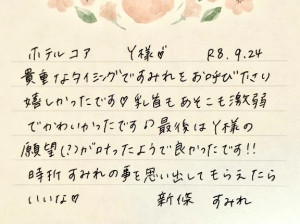 ホテルコア Y様♡ R8.9.24
貴重なタイミングですみれをお呼びださり
嬉しかったです♡乳首もあそこも激弱
でかわいかったです♪最後はY様の
願望(?)が叶ったようで良かったです!!
時折すみれの事を思い出してもらえたら
いいな♡ 新條 すみれ